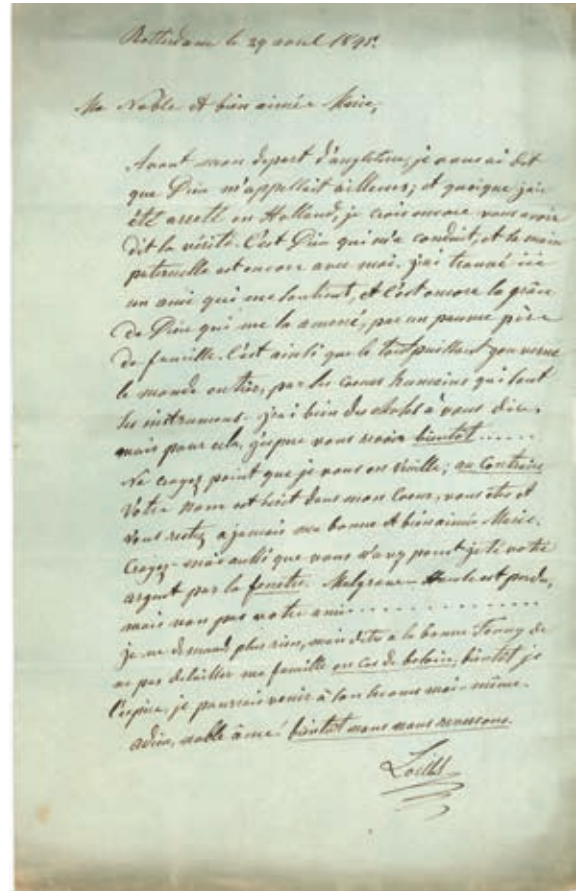 Rotterdam le 29 avril 1845.
Ma Noble et bien aimée Marie,
Avant mon depart d'angleterre, je vous ai dit
que Dieu m'appellait ailleurs; et quoique j'aie
été arreté en Holland, je crois encore vous avoir
dit la vérité. C'est Dieu qui m'a conduit, et sa main
paternelle est encore avec moi. j'ai trouvé ici
un ami qui me soutient, et c'est encore la grâce
de Dieu qui me la amené, par un pauvre père
de famille. C'est ainsi que le tout puissant gouverne
le monde entier, par les coeurs humains qui sont
ses instrumens. j'ai bien des choses à vous dire,
mais pour cela, j'espere vous revoir bientot.....
Ne croyez point que je vous en veuille; au Contraire
Votre nom est bénit dans mon Coeur, vous etes et
vous restez a jamais ma bonne et bien aimée Marie.
Croyez-moi aussi que vous n'avez point jeté votre
argent par la fenetre. Mulgrave est perdu,
mais non pas votre ami
je ne demand plus rien, mais dite a la bonne Fanny de
ne pas delaisser ma famille en cas de besoin, bientot je
l'espère, je pourrai venir à son secours moi-même.
adieu, noble âme! bientot nous nous reverrons.